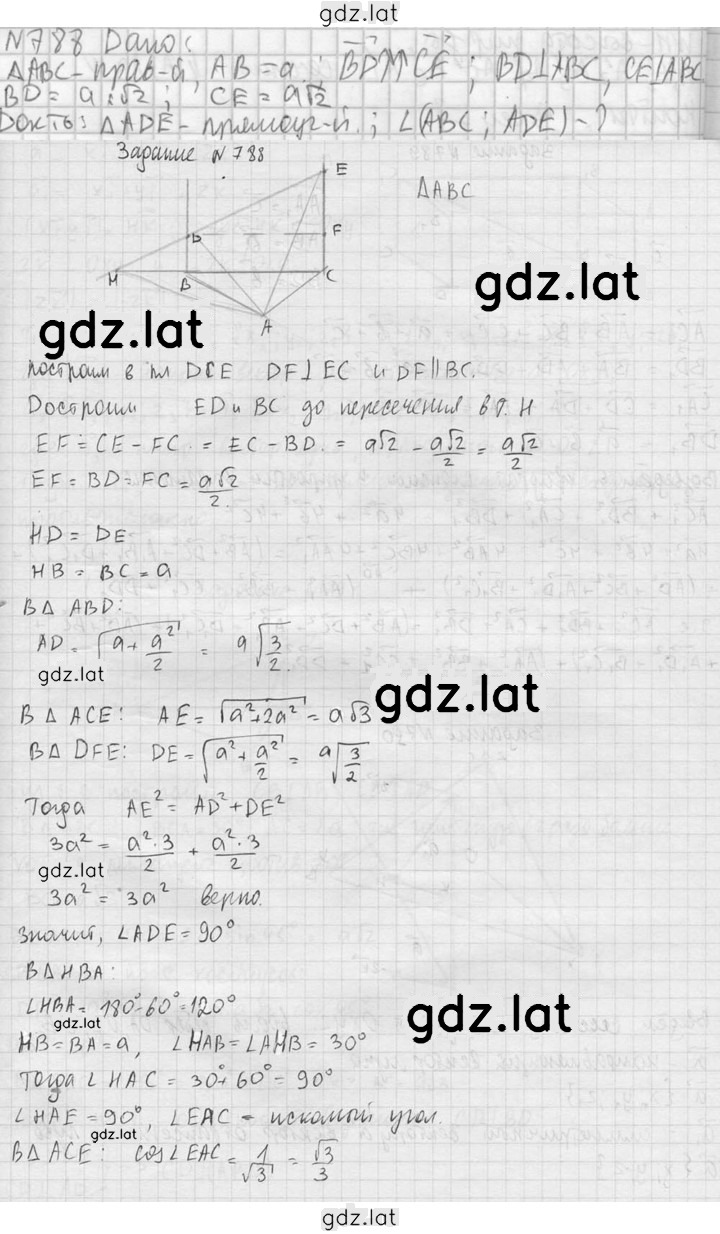 gdz.lat
N788 Дано:
ΔABC - прав-й, AB = a.; BD⇈CE; BD⊥ABC, CE⊥ABC
BD = a:√2; CE = a√2
Док-ть: ΔADE - прямоуг-й.; ∠(ABC; ADE) - ?
Задание N788
ΔABC
E
D
F
H
B
C
A
gdz.lat
gdz.lat
построим в пл DCE DF⊥EC и DF∥BC.
Достроим ED и BC до пересечения в т. H
EF = CE - FC = EC - BD = a√2 - a√2/2 = a√2/2
EF = BD = FC = a√2/2
HD = DE
HB = BC = a
В Δ ABD:
AD = √(a + a²/2) = a√(3/2)
gdz.lat
gdz.lat
В Δ ACE: AE = √(a²+2a²) = a√3
В Δ DFE: DE = √(a² + a²/2) = a√(3/2)
Тогда AE² = AD² + DE²
3a² = a²·3/2 + a²·3/2
gdz.lat
3a² = 3a² верно.
Значит, ∠ADE = 90°
В Δ HBA:
∠HBA = 180°-60°=120°
gdz.lat
gdz.lat
HB = BA = a, ∠HAB = ∠AHB = 30°
Тогда ∠HAC = 30°+60° = 90°
∠HAE = 90°, ∠EAC - искомый угол.
gdz.lat
В Δ ACE: cos∠EAC = 1/√3 = √3/3
gdz.lat